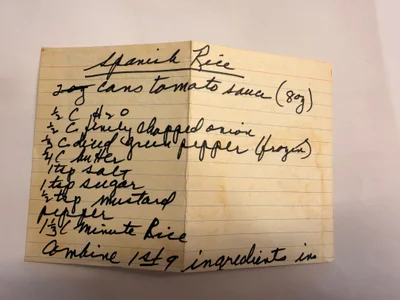 Spanish Rice
2 cans tomato sauce (8oz)
½ C H2O
½ C. finely chopped onion
C diced green pepper (frozen)
¼ C butter
1 tsp salt
1 tsp sugar
½ tsp mustard
pepper
1⅓ C Minute Rice
Combine 1st 9 ingredients in